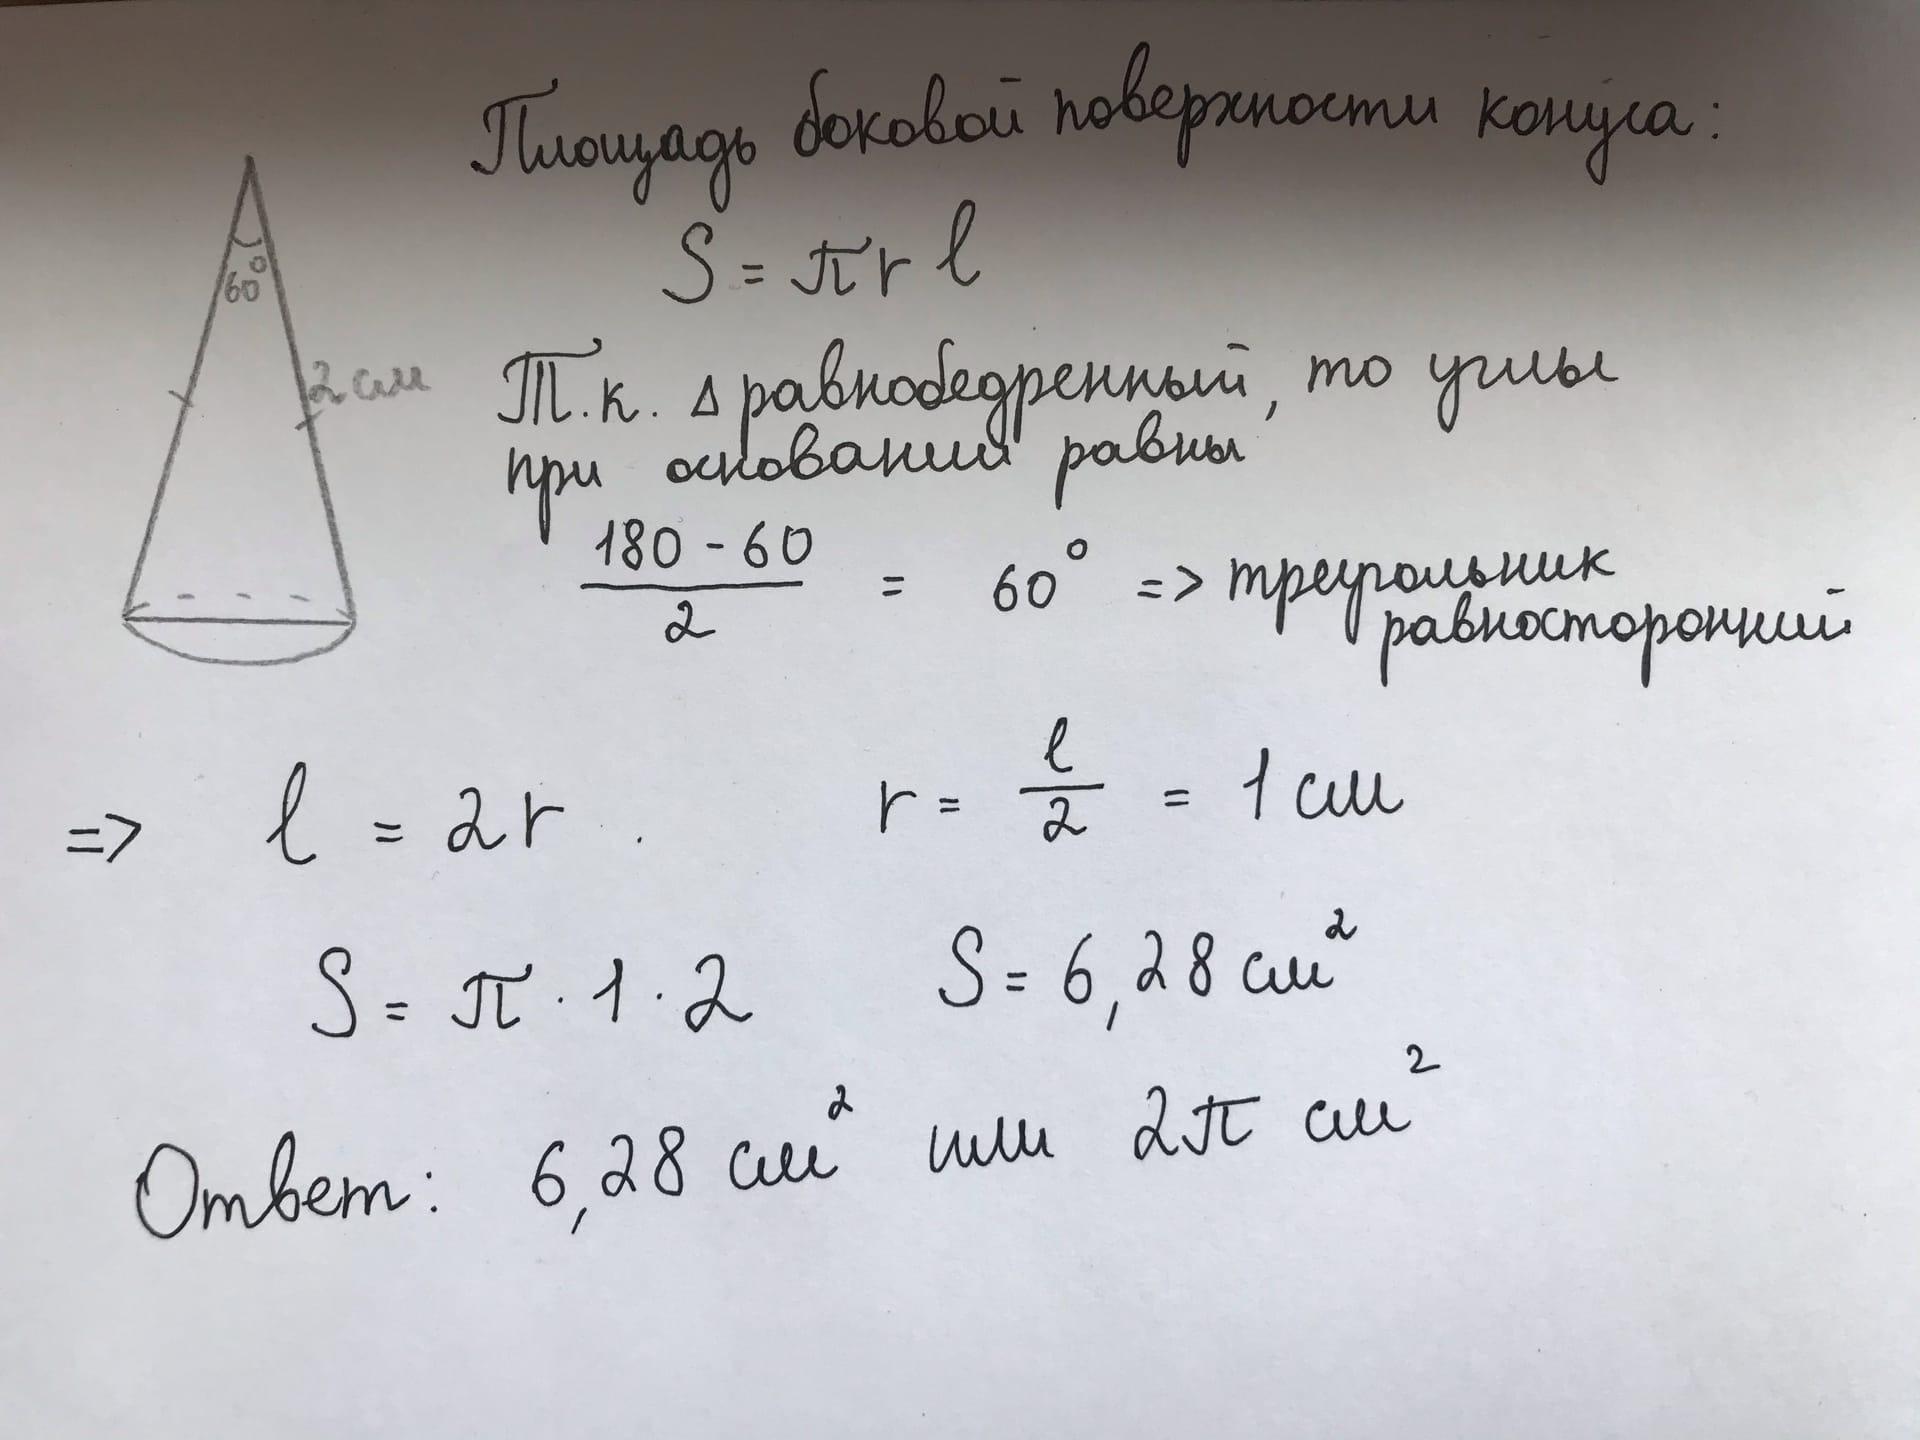 Площадь боковой поверхности конуса:
S = πrl
60°
2 см
Т.к. Δ равнобедренный, то углы
при основании равны
(180 - 60)/2 = 60° => треугольник
равносторонний
=> l = 2r . r = l/2 = 1 см
S = π · 1 · 2 S = 6,28 см²
Ответ: 6,28 см² или 2π см²